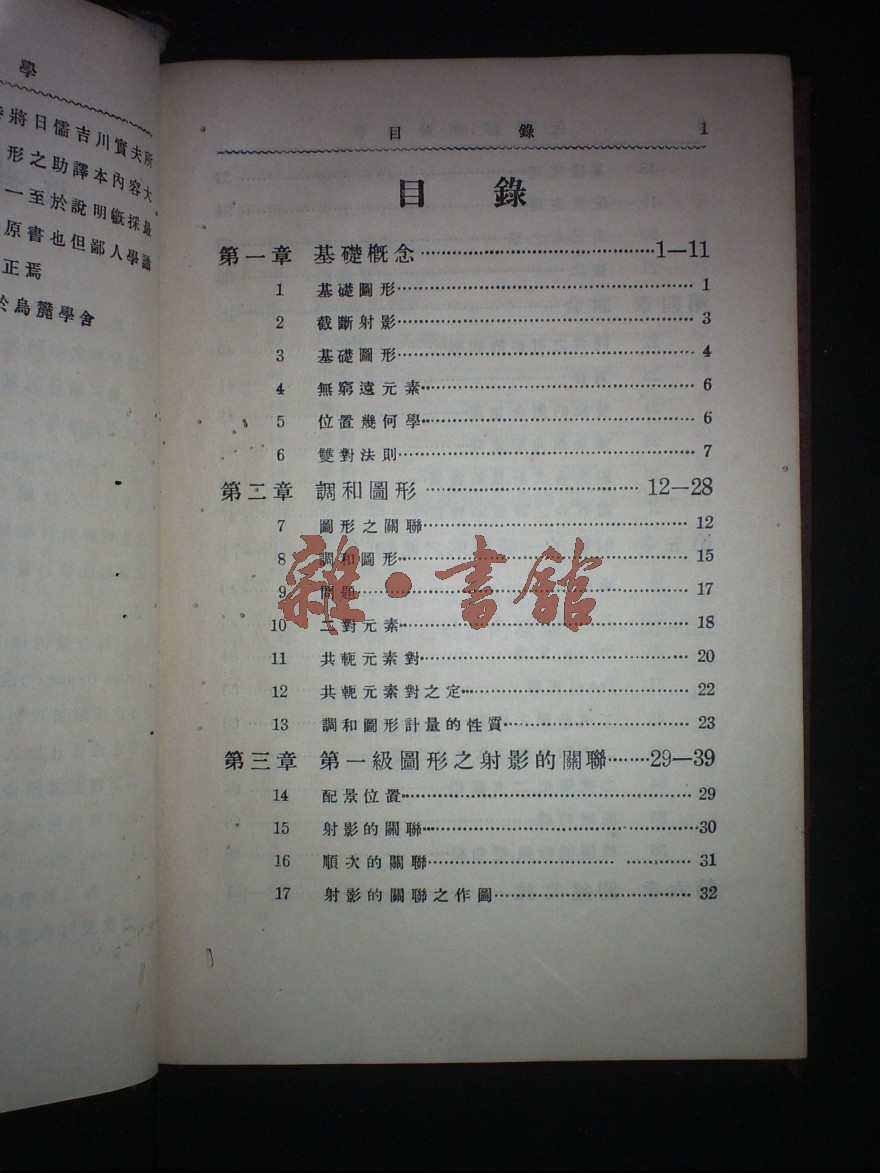 學
將日儒吉川實夫所
形之助譯本內容大
一至於說明槪採最
原書也但鄙人學識
正焉
於烏麓學舍
目錄 1
目錄
第一章 基礎槪念 1—11
1 基礎圖形 1
2 截斷射影 3
3 基礎圖形 4
4 無窮遠元素 6
5 位置幾何學 6
6 雙對法則 7
第二章 調和圖形 12—28
7 圖形之關聯 12
8 調和圖形 15
9 問題 17
10 二對元素 18
11 共軛元素對 20
12 共軛元素對之定 22
13 調和圖形計量的性質 23
第三章 第一級圖形之射影的關聯 29—39
14 配景位置 29
15 射影的關聯 30
16 順次的關聯 31
17 射影的關聯之作圖 32
雜·書館